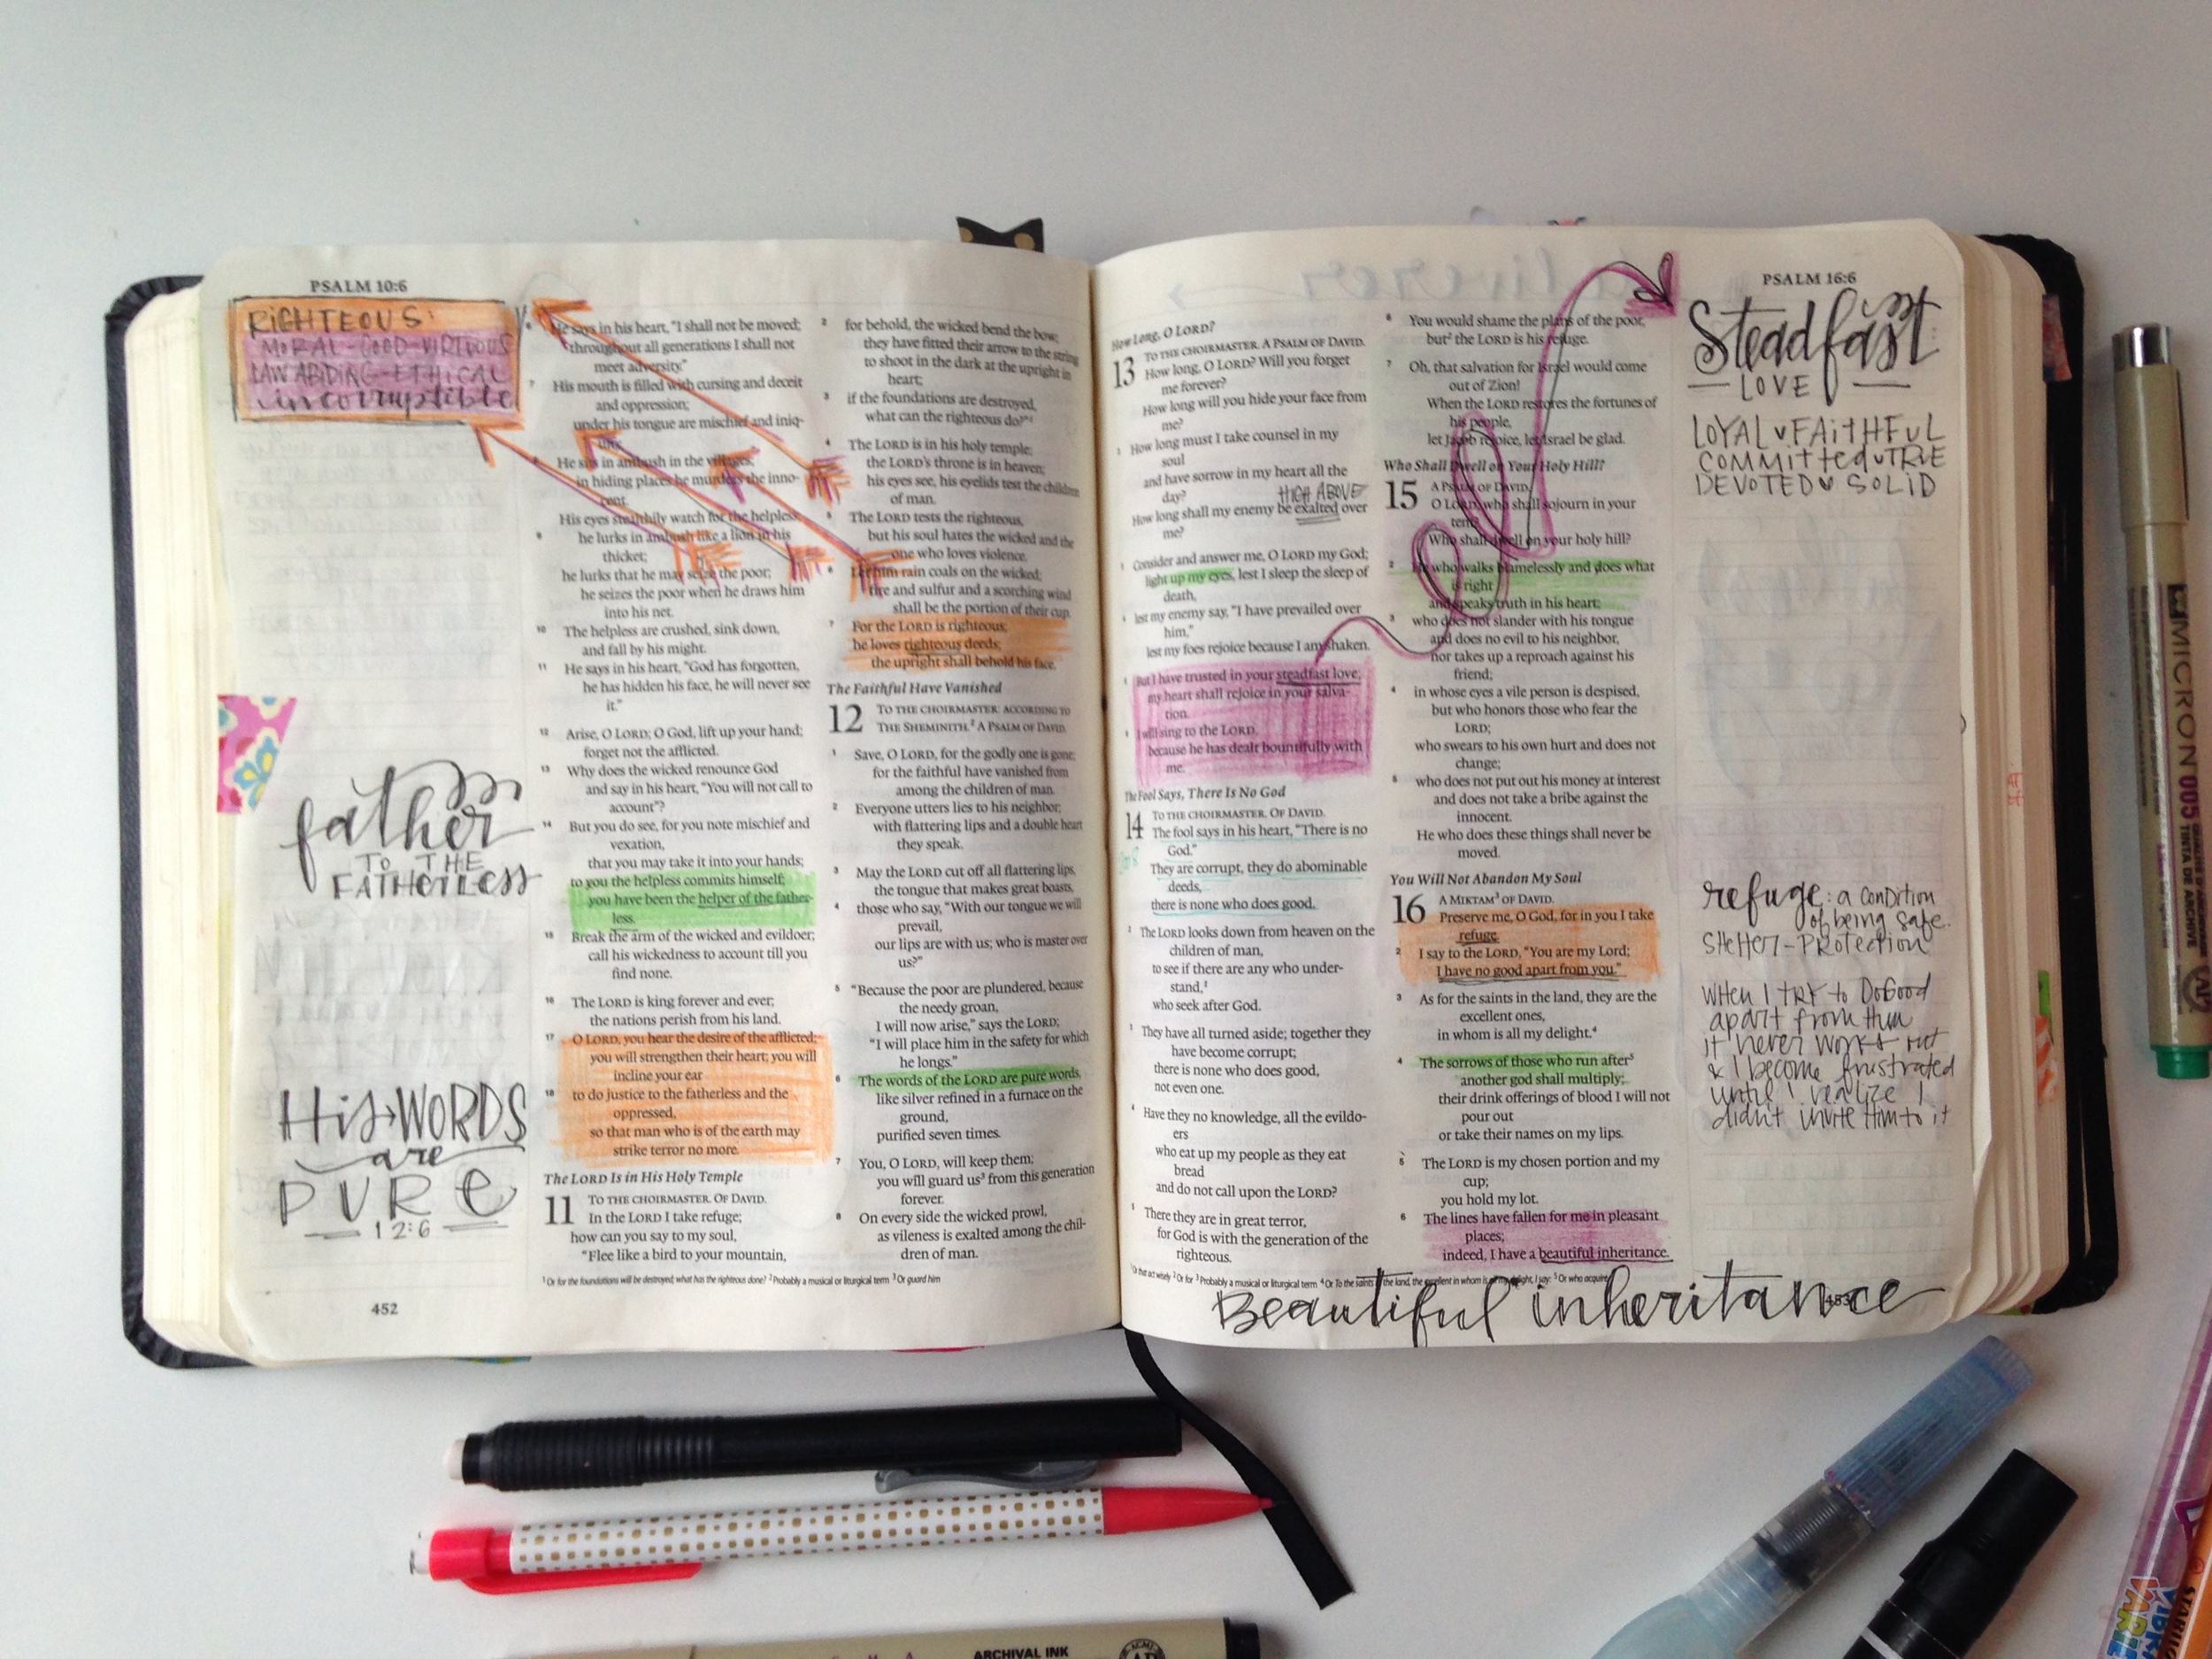 PSALM 10:6
RIGHTEOUS:
MORAL-GOOD-VIRTUOUS
LAW ABIDING-ETHICAL
incorruptible
father
TO THE
FATHERLESS
His WORDS
are
PURE
12:6
6 He says in his heart, "I shall not be moved;
throughout all generations I shall not
meet adversity."
7 His mouth is filled with cursing and deceit
and oppression;
under his tongue are mischief and iniq-
uity.
8 He sits in ambush in the villages;
in hiding places he murders the inno-
cent.
His eyes stealthily watch for the helpless;
9 he lurks in ambush like a lion in his
thicket;
he lurks that he may seize the poor;
he seizes the poor when he draws him
into his net.
10 The helpless are crushed, sink down,
and fall by his might.
11 He says in his heart, "God has forgotten,
he has hidden his face, he will never see
it."
12 Arise, O LORD; O God, lift up your hand;
forget not the afflicted.
13 Why does the wicked renounce God
and say in his heart, "You will not call to
account"?
14 But you do see, for you note mischief and
vexation,
that you may take it into your hands;
to you the helpless commits himself;
you have been the helper of the father-
less.
15 Break the arm of the wicked and evildoer;
call his wickedness to account till you
find none.
16 The LORD is king forever and ever;
the nations perish from his land.
17 O LORD, you hear the desire of the afflicted;
you will strengthen their heart; you will
incline your ear
18 to do justice to the fatherless and the
oppressed,
so that man who is of the earth may
strike terror no more.
The LORD Is in His Holy Temple
11 TO THE CHOIRMASTER. OF DAVID.
In the LORD I take refuge;
how can you say to my soul,
"Flee like a bird to your mountain,
2 for behold, the wicked bend the bow;
they have fitted their arrow to the string
to shoot in the dark at the upright in
heart;
3 if the foundations are destroyed,
what can the righteous do?"1
4 The LORD is in his holy temple;
the LORD's throne is in heaven;
his eyes see, his eyelids test the children
of man.
5 The LORD tests the righteous,
but his soul hates the wicked and the
one who loves violence.
6 Let him rain coals on the wicked;
fire and sulfur and a scorching wind
shall be the portion of their cup.
7 For the LORD is righteous;
he loves righteous deeds;
the upright shall behold his face.
The Faithful Have Vanished
12 TO THE CHOIRMASTER: ACCORDING TO
THE SHEMINITH.2 A PSALM OF DAVID.
1 Save, O LORD, for the godly one is gone;
for the faithful have vanished from
among the children of man.
2 Everyone utters lies to his neighbor;
with flattering lips and a double heart
they speak.
3 May the LORD cut off all flattering lips,
the tongue that makes great boasts,
4 those who say, "With our tongue we will
prevail,
our lips are with us; who is master over
us?"
5 "Because the poor are plundered, because
the needy groan,
I will now arise," says the LORD;
"I will place him in the safety for which
he longs."
6 The words of the LORD are pure words,
like silver refined in a furnace on the
ground,
purified seven times.
7 You, O LORD, will keep them;
you will guard us3 from this generation
forever.
8 On every side the wicked prowl,
as vileness is exalted among the chil-
dren of man.
1 Or for the foundations will be destroyed; what has the righteous done? 2 Probably a musical or liturgical term 3 Or guard him
452
How Long, O LORD?
13 TO THE CHOIRMASTER. A PSALM OF DAVID.
How long, O LORD? Will you forget
me forever?
How long will you hide your face from
me?
How long must I take counsel in my
soul
and have sorrow in my heart all the
day?
HIGH ABOVE
How long shall my enemy be exalted over
me?
Consider and answer me, O LORD my God;
light up my eyes, lest I sleep the sleep of
death,
4 lest my enemy say, "I have prevailed over
him,"
lest my foes rejoice because I am shaken.
But I have trusted in your steadfast love;
my heart shall rejoice in your salva-
tion.
I will sing to the LORD,
because he has dealt bountifully with
me.
The Fool Says, There Is No God
14 TO THE CHOIRMASTER. OF DAVID.
The fool says in his heart, "There is no
God."
They are corrupt, they do abominable
deeds,
there is none who does good.
The LORD looks down from heaven on the
children of man,
to see if there are any who under-
stand,1
who seek after God.
They have all turned aside; together they
have become corrupt;
there is none who does good,
not even one.
4 Have they no knowledge, all the evildo-
ers
who eat up my people as they eat
bread
and do not call upon the LORD?
There they are in great terror,
for God is with the generation of the
righteous.
6 You would shame the plans of the poor,
but2 the LORD is his refuge.
7 Oh, that salvation for Israel would come
out of Zion!
When the LORD restores the fortunes of
his people,
let Jacob rejoice, let Israel be glad.
Who Shall Dwell on Your Holy Hill?
15 A PSALM OF DAVID.
O LORD, who shall sojourn in your
tent?
Who shall dwell on your holy hill?
2 He who walks blamelessly and does what
is right
and speaks truth in his heart;
3 who does not slander with his tongue
and does no evil to his neighbor,
nor takes up a reproach against his
friend;
4 in whose eyes a vile person is despised,
but who honors those who fear the
LORD;
who swears to his own hurt and does not
change;
5 who does not put out his money at interest
and does not take a bribe against the
innocent.
He who does these things shall never be
moved.
You Will Not Abandon My Soul
16 A MIKTAM3 OF DAVID.
Preserve me, O God, for in you I take
refuge.
2 I say to the LORD, "You are my Lord;
I have no good apart from you."
3 As for the saints in the land, they are the
excellent ones,
in whom is all my delight.4
4 The sorrows of those who run after5
another god shall multiply;
their drink offerings of blood I will not
pour out
or take their names on my lips.
5 The LORD is my chosen portion and my
cup;
you hold my lot.
6 The lines have fallen for me in pleasant
places;
indeed, I have a beautiful inheritance.
1 Or that act wisely 2 Or for 3 Probably a musical or liturgical term 4 Or To the saints in the land, the excellent in whom is all my delight, I say: 5 Or who acquire
Beautiful inheritance
PSALM 16:6
Steadfast
LOVE
LOYAL FAITHFUL
COMMITTED TRUE
DEVOTED SOLID
refuge: a condition
of being safe.
SHELTER-PROTECTION
WHEN I TRY to DoGood
apart from Him
it never works out
& I become frustrated
until I realize I
didn't invite Him to it
MICRON 005
TINTA DE ARCHIVE
ARCHIVAL INK